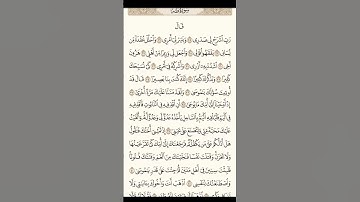 سورة طه
قَالَ
رَبِّ ٱشْرَحْ لِى صَدْرِى ۝ وَيَسِّرْ لِىٓ أَمْرِى ۝ وَٱحْلُلْ عُقْدَةً مِّن
لِّسَانِى ۝ يَفْقَهُوا۟ قَوْلِى ۝ وَٱجْعَل لِّى وَزِيرًا مِّنْ أَهْلِى ۝ هَٰرُونَ
أَخِى ۝ ٱشْدُدْ بِهِۦٓ أَزْرِى ۝ وَأَشْرِكْهُ فِىٓ أَمْرِى ۝ كَىْ نُسَبِّحَكَ
كَثِيرًا ۝ وَنَذْكُرَكَ كَثِيرًا ۝ إِنَّكَ كُنتَ بِنَا بَصِيرًا ۝ قَالَ قَدْ
أُوتِيتَ سُؤْلَكَ يَٰمُوسَىٰ ۝ وَلَقَدْ مَنَنَّا عَلَيْكَ مَرَّةً أُخْرَىٰٓ ۝
إِذْ أَوْحَيْنَآ إِلَىٰٓ أُمِّكَ مَا يُوحَىٰٓ ۝ أَنِ ٱقْذِفِيهِ فِى ٱلتَّابُوتِ فَٱقْذِفِيهِ
فِى ٱلْيَمِّ فَلْيُلْقِهِ ٱلْيَمُّ بِٱلسَّاحِلِ يَأْخُذْهُ عَدُوٌّ لِّى وَعَدُوٌّ لَّهُۥ وَأَلْقَيْتُ
عَلَيْكَ مَحَبَّةً مِّنِّى وَلِتُصْنَعَ عَلَىٰ عَيْنِىٓ ۝ إِذْ تَمْشِىٓ أُخْتُكَ فَتَقُولُ
هَلْ أَدُلُّكُمْ عَلَىٰ مَن يَكْفُلُهُۥ فَرَجَعْنَٰكَ إِلَىٰٓ أُمِّكَ كَىْ تَقَرَّ عَيْنُهَا
وَلَا تَحْزَنَ وَقَتَلْتَ نَفْسًا فَنَجَّيْنَٰكَ مِنَ ٱلْغَمِّ وَفَتَنَّٰكَ فُتُونًا
فَلَبِثْتَ سِنِينَ فِىٓ أَهْلِ مَدْيَنَ ثُمَّ جِئْتَ عَلَىٰ قَدَرٍ يَٰمُوسَىٰ ۝
وَٱصْطَنَعْتُكَ لِنَفْسِى ۝ ٱذْهَبْ أَنتَ وَأَخُوكَ بِـَٔايَٰتِى وَلَا